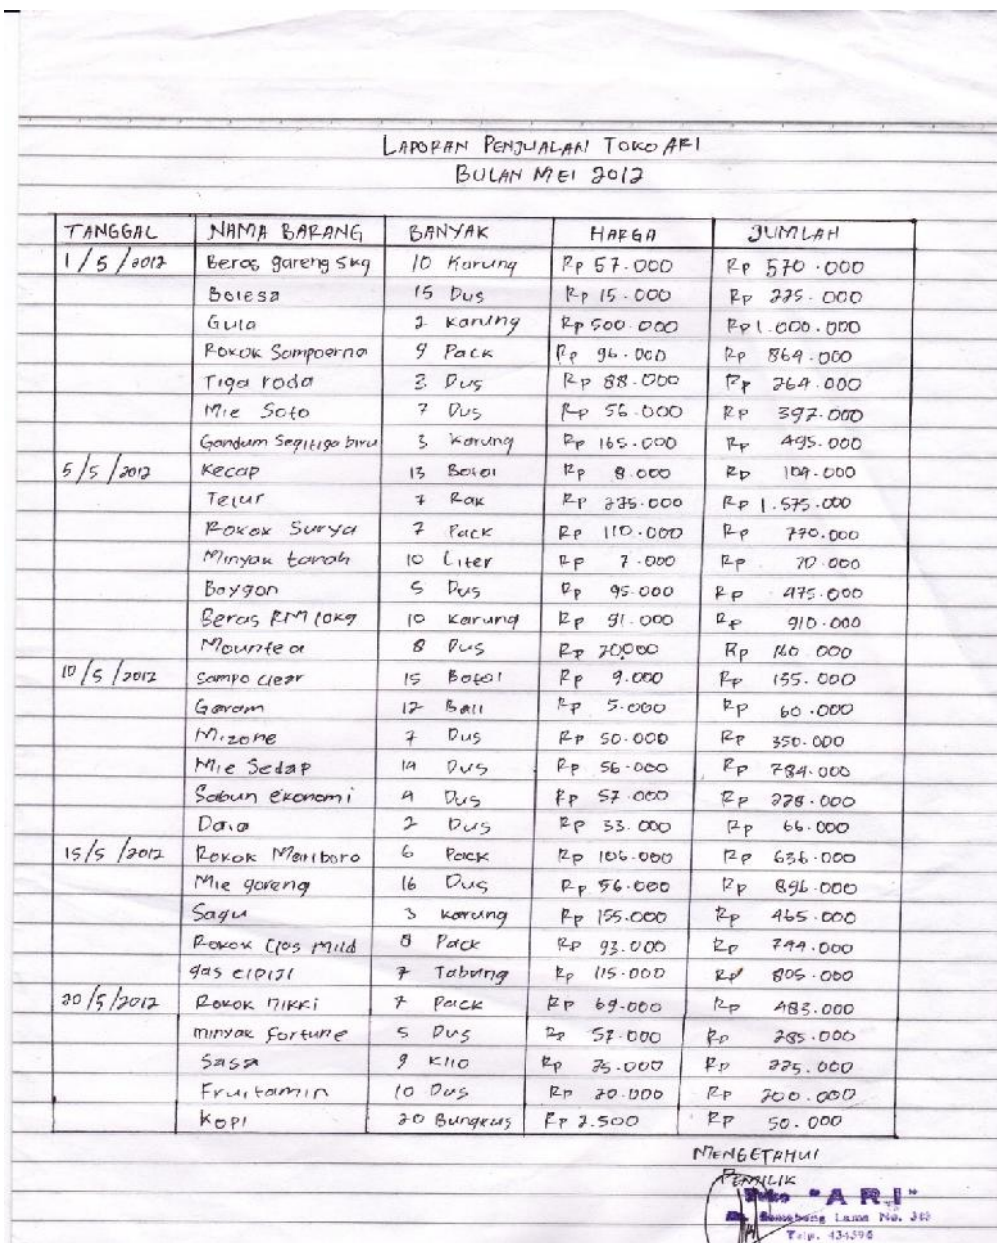 LAPORAN PENJUALAN TOKO ARI
BULAN MEI 2012
TANGGAL NAMA BARANG BANYAK HARGA JUMLAH
1/5/2012 Beras gareng 5kg 10 Karung Rp 57.000 Rp 570.000
Bolesa 15 Dus Rp 15.000 Rp 225.000
Gula 2 Karung Rp 500.000 Rp 1.000.000
Rokok Sampoerna 9 Pack Rp 96.000 Rp 864.000
Tiga roda 3 Dus Rp 88.000 Rp 264.000
Mie Soto 7 Dus Rp 56.000 Rp 392.000
Gandum Segitiga biru 3 Karung Rp 165.000 Rp 495.000
5/5/2012 Kecap 13 Botol Rp 8.000 Rp 104.000
Telur 7 Rak Rp 225.000 Rp 1.575.000
Rokok Surya 7 Pack Rp 110.000 Rp 770.000
Minyak tanah 10 Liter Rp 7.000 Rp 70.000
Baygon 5 Dus Rp 95.000 Rp 475.000
Beras RM 10kg 10 Karung Rp 91.000 Rp 910.000
Mountea 8 Dus Rp 20.000 Rp 160.000
10/5/2012 Sampo clear 15 Botol Rp 9.000 Rp 135.000
Garam 12 Ball Rp 5.000 Rp 60.000
Mizone 7 Dus Rp 50.000 Rp 350.000
Mie Sedap 14 Dus Rp 56.000 Rp 784.000
Sabun ekonomi 4 Dus Rp 57.000 Rp 228.000
Daia 2 Dus Rp 33.000 Rp 66.000
15/5/2012 Rokok Marlboro 6 Pack Rp 106.000 Rp 636.000
Mie goreng 16 Dus Rp 56.000 Rp 896.000
Sagu 3 Karung Rp 155.000 Rp 465.000
Rokok Clas Mild 8 Pack Rp 93.000 Rp 744.000
gas elpiji 7 Tabung Rp 115.000 Rp 805.000
20/5/2012 Rokok nikki 7 Pack Rp 69.000 Rp 483.000
minyak fortune 5 Dus Rp 57.000 Rp 285.000
Sasa 9 Kilo Rp 25.000 Rp 225.000
Fruitamin 10 Dus Rp 20.000 Rp 200.000
Kopi 20 Bungkus Rp 2.500 Rp 50.000
MENGETAHUI
PEMILIK
Toko "ARI"
Lama No.
Telp.